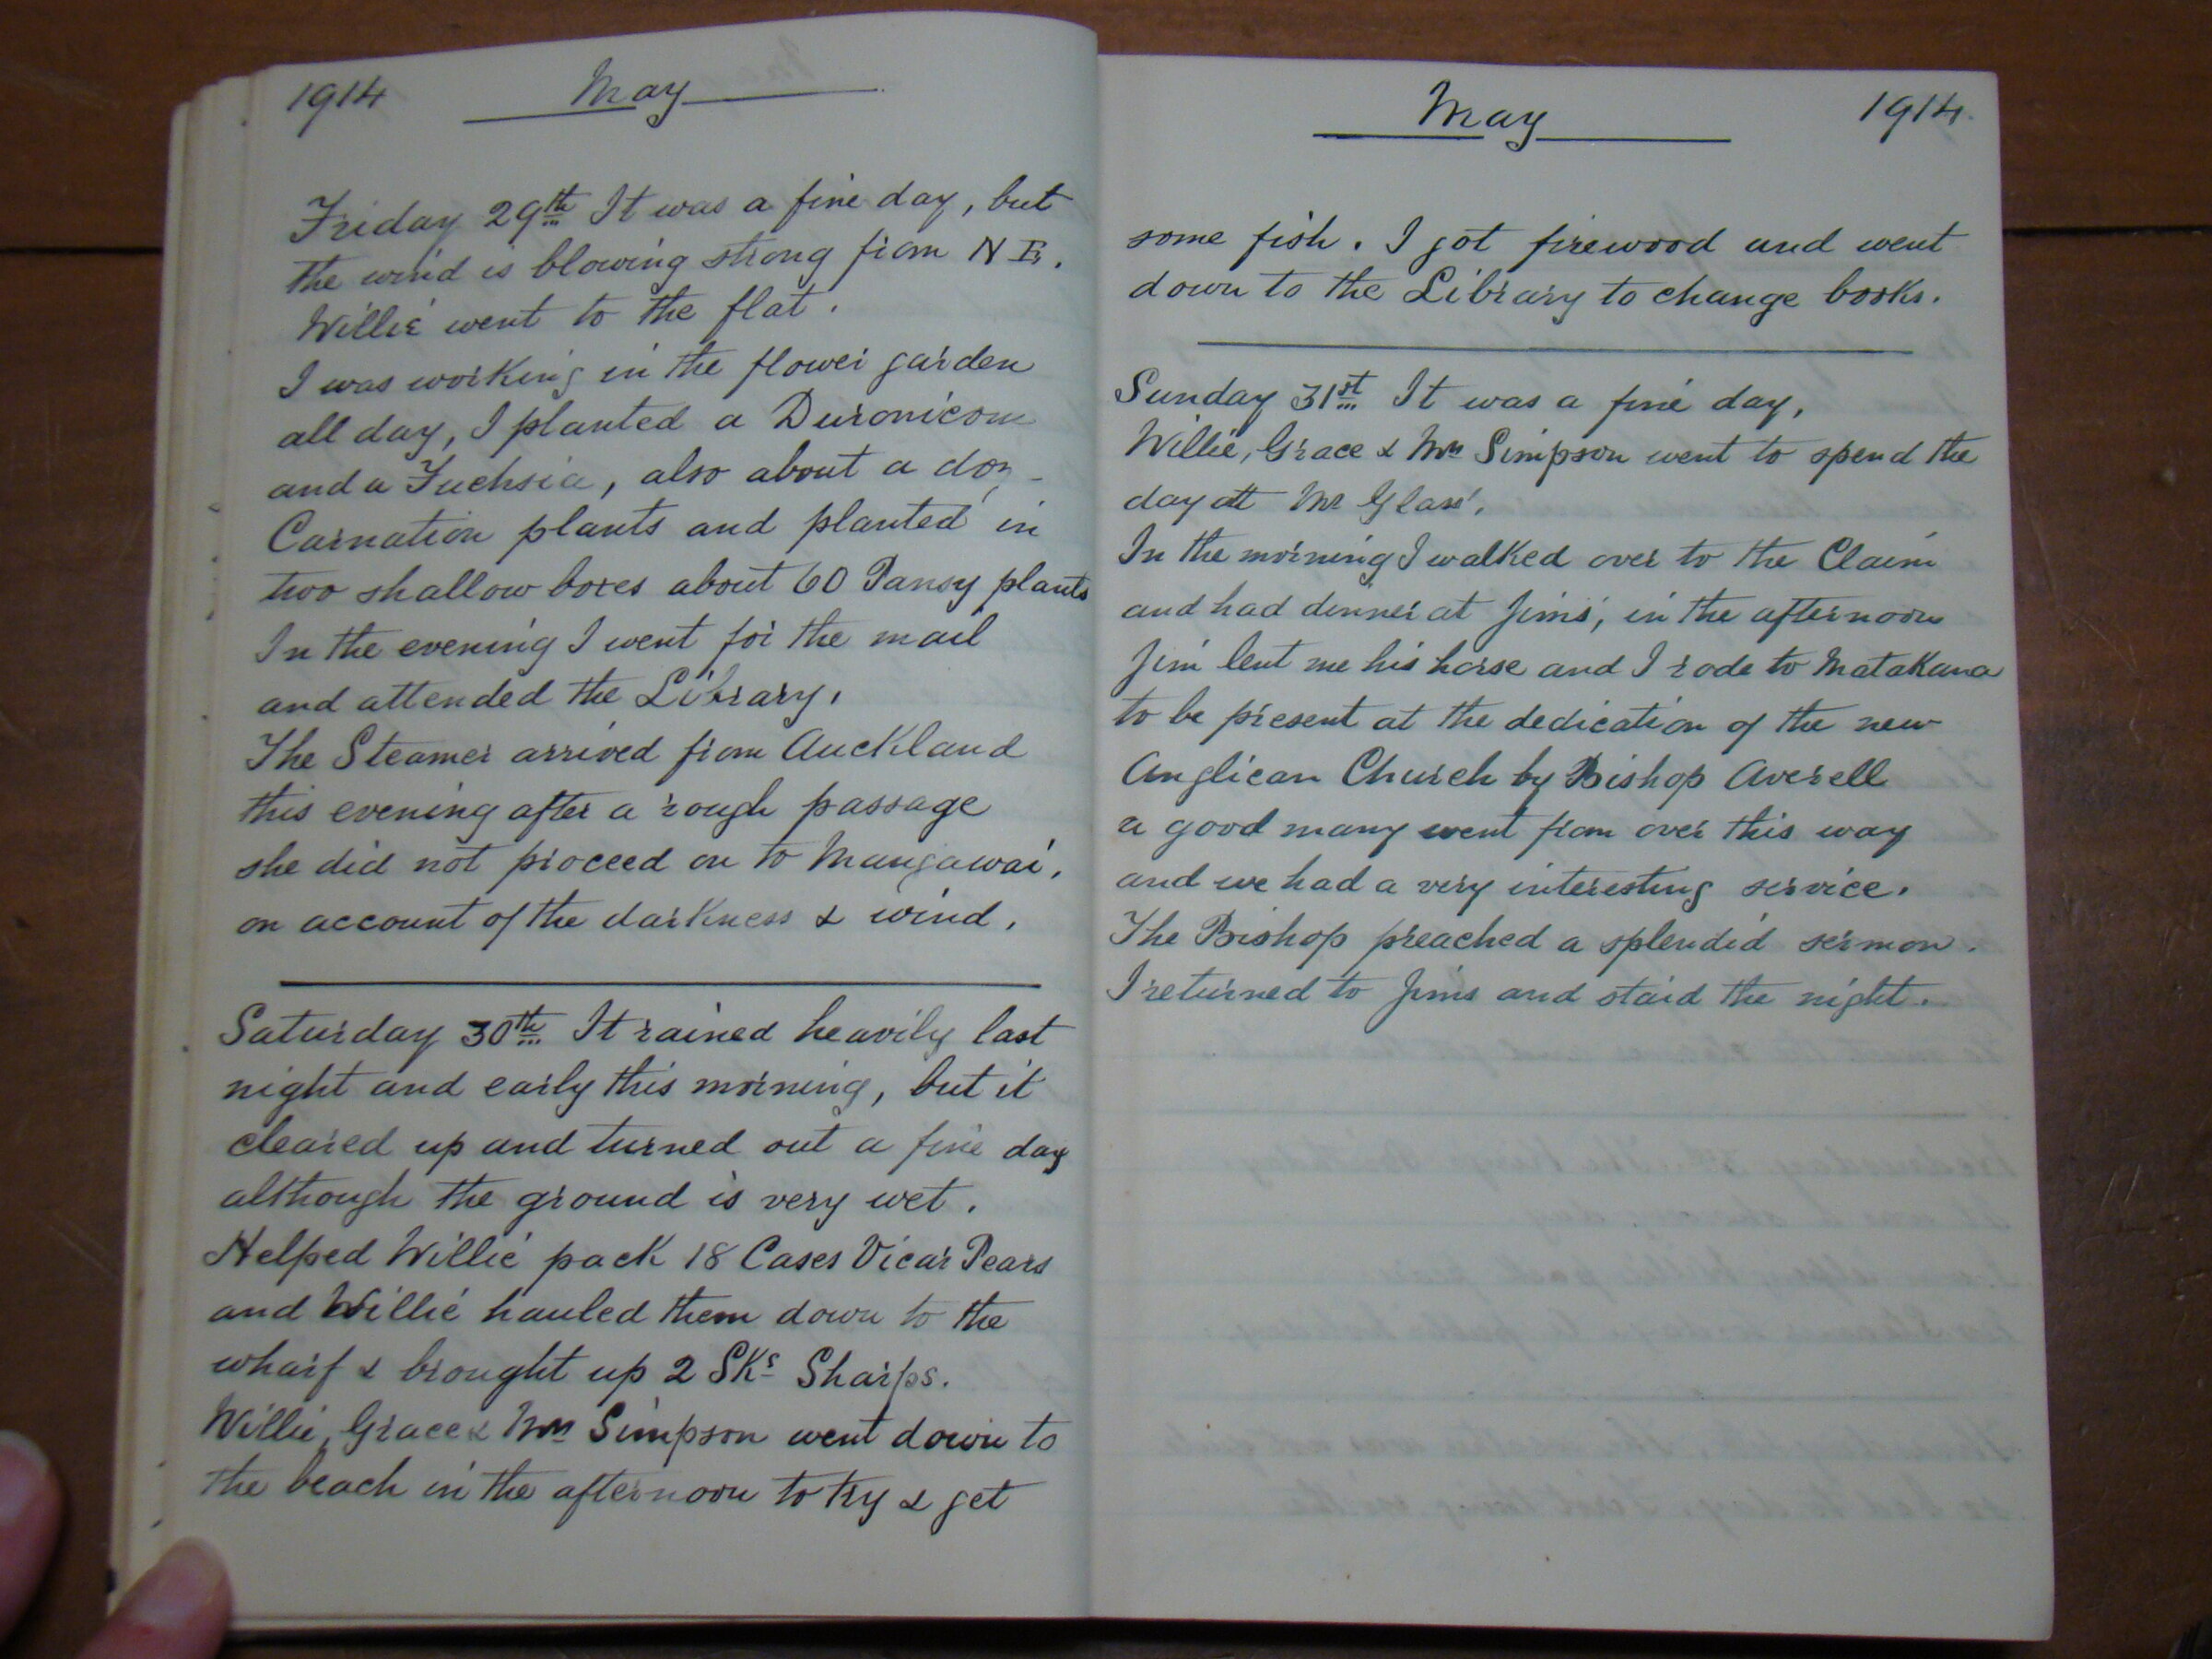 1914 May
Friday 29th It was a fine day, but
the wind is blowing strong from N E.
Willie went to the flat.
I was working in the flower garden
all day, I planted a Duronicom
and a Fuchsia, also about a doz
Carnation plants and planted in
two shallow boxes about 60 Pansy plants
In the evening I went for the mail
and attended the Library.
The Steamer arrived from Auckland
this evening after a rough passage
she did not proceed on to Mangawai,
on account of the darkness & wind.
Saturday 30th It rained heavily last
night and early this morning, but it
cleared up and turned out a fine day
although the ground is very wet.
Helped Willie pack 18 Cases Vicar Pears
and Willie hauled them down to the
wharf & brought up 2 SKs Sharps.
Willie, Grace & Mrs Simpson went down to
the beach in the afternoon to try & get
May 1914.
some fish. I got firewood and went
down to the Library to change books.
Sunday 31st It was a fine day,
Willie, Grace & Mrs Simpson went to spend the
day at Mr Glass'.
In the morning I walked over to the Claim
and had dinner at Jims', in the afternoon
Jim lent me his horse and I rode to Matakana
to be present at the dedication of the new
Anglican Church by Bishop Averell
a good many went from over this way
and we had a very interesting service.
The Bishop preached a splendid sermon.
I returned to Jims and staid the night.